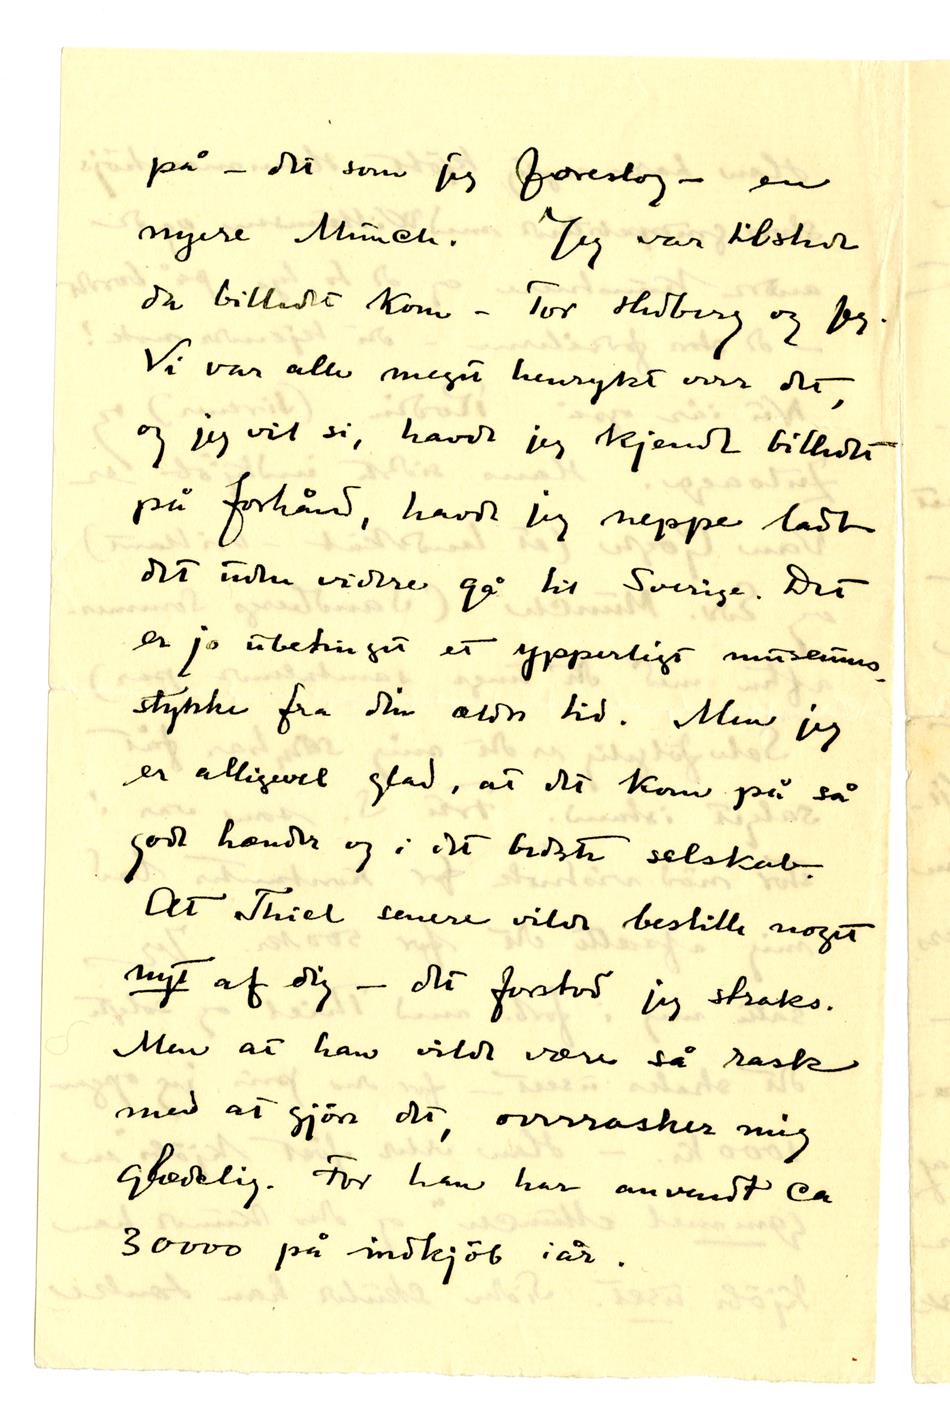 på – det som jeg foreslog – en
nyere Munch. Jeg var tilstede
da billedet kom – Tor Hedberg og jeg.
Vi var alle meget henrykt over det,
og jeg vil si, havde jeg kjendt billedet
på forhånd, havde jeg neppe ladt
det uden videre gå til Sverige. Det
er jo ubetinget et ypperligt museums-
stykke fra din ældre tid. Men jeg
er alligevel glad, at det kom på så
gode hænder og i det bedste selskab.
At Thiel senere vilde bestille noget
nyt af dig – det forstod jeg straks.
Men at han vilde være så rask
med at gjöre det, overrasker mig
glædelig. For han har anvendt ca
30000 på indkjöb iår.